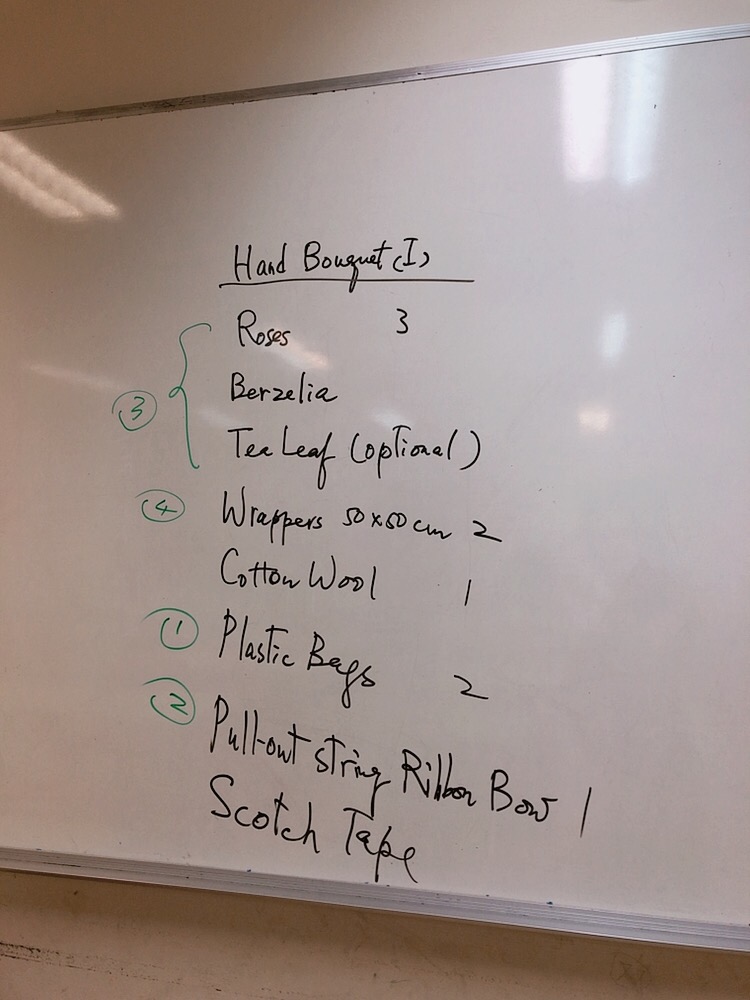 Hand Bouquet (I)
Roses 3
③ Berzelia
Tea Leaf (optional)
④ Wrappers 50x50cm 2
Cotton Wool 1
① Plastic Bags 2
② Pull-out string Ribbon Bow 1
Scotch Tape